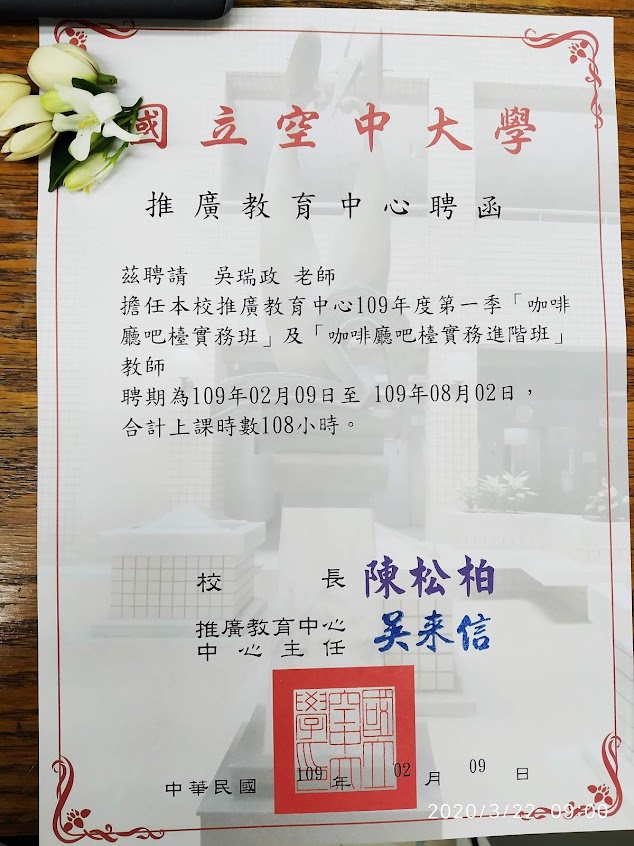 國立空中大學
推廣教育中心聘函
茲聘請 吳瑞政 老師
擔任本校推廣教育中心109年度第一季「咖啡
廳吧檯實務班」及「咖啡廳吧檯實務進階班」
教師
聘期為109年02月09日至 109年08月02日，
合計上課時數108小時。
校 長 陳松柏
推廣教育中心
中心主任 吳来信
中華民國 109 年 02 月 09 日
2020/3/22 09:00